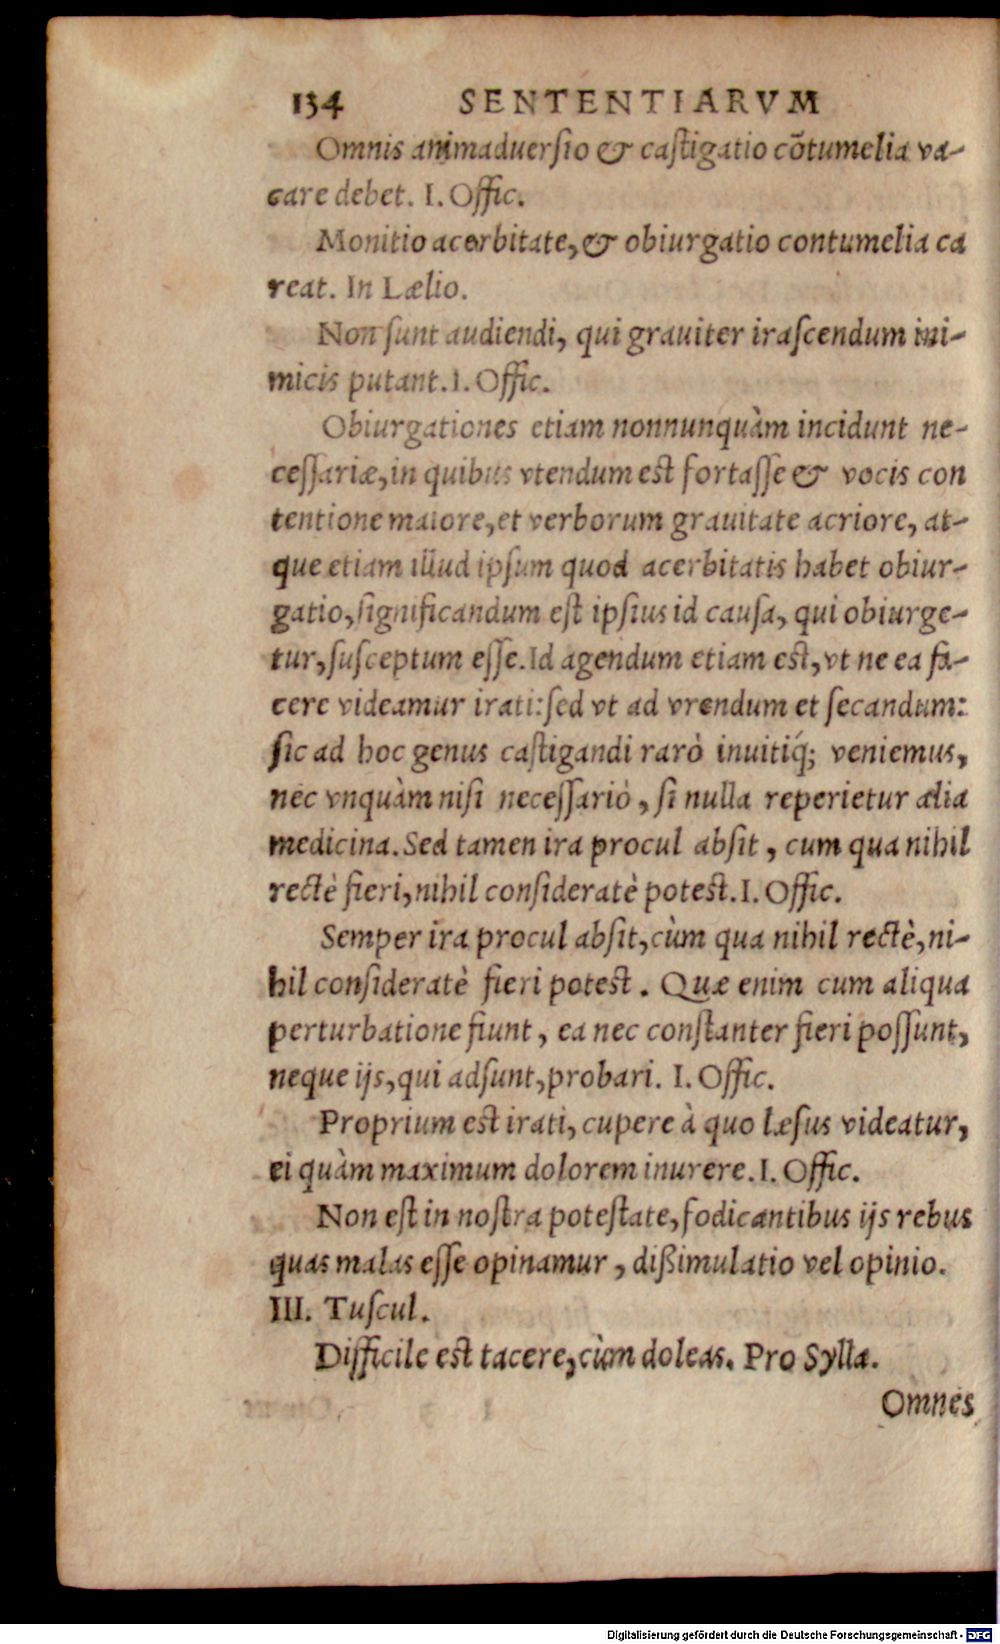 134 SENTENTIARVM
Omnis animaduersio & castigatio cõtumelia va-
care debet. I. Offic.
Monitio acerbitate, & obiurgatio contumelia ca
reat. In Lælio.
Non sunt audiendi, qui grauiter irascendum ini-
micis putant. I. Offic.
Obiurgationes etiam nonnunquàm incidunt ne-
cessariæ, in quibus vtendum est fortasse & vocis con
tentione maiore, et verborum grauitate acriore, at-
que etiam illud ipsum quod acerbitatis habet obiur-
gatio, significandum est ipsius id causa, qui obiurge-
tur, susceptum esse. Id agendum etiam est, vt ne ea fa-
cere videamur irati: sed vt ad vrendum et secandum:
sic ad hoc genus castigandi rarò inuitiq́; veniemus,
nec vnquàm nisi necessariò, si nulla reperietur alia
medicina. Sed tamen ira procul absit, cum qua nihil
rectè fieri, nihil consideratè potest. I. Offic.
Semper ira procul absit, cùm qua nihil rectè, ni-
hil consideratè fieri potest. Quæ enim cum aliqua
perturbatione fiunt, ea nec constanter fieri possunt,
neque ijs, qui adsunt, probari. I. Offic.
Proprium est irati, cupere à quo læsus videatur,
ei quàm maximum dolorem inurere. I. Offic.
Non est in nostra potestate, fodicantibus ijs rebus
quas malas esse opinamur, dißimulatio vel opinio.
III. Tuscul.
Difficile est tacere, cùm doleas. Pro Sylla.
Omnes
Digitalisierung gefördert durch die Deutsche Forschungsgemeinschaft - DFG